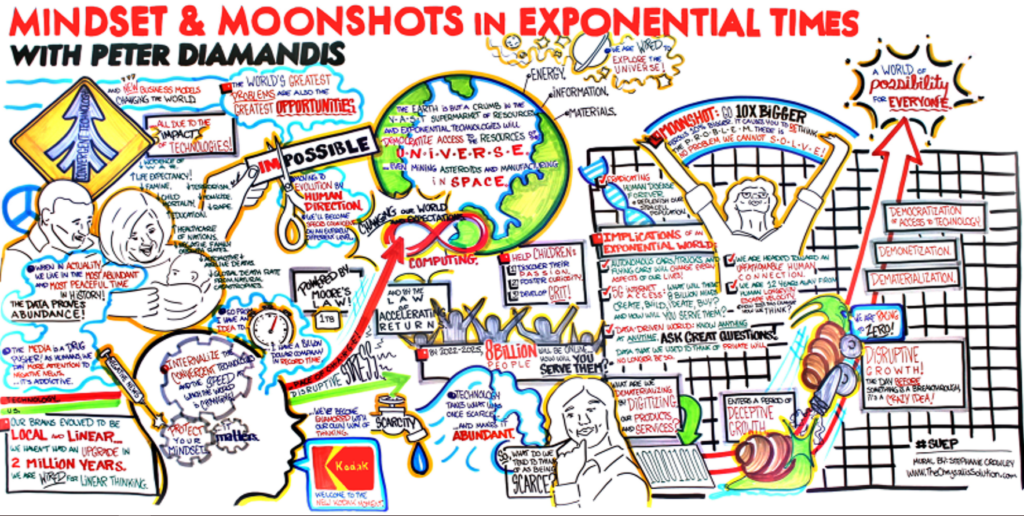 MINDSET & MOONSHOTS IN EXPONENTIAL TIMES
WITH PETER DIAMANDIS
CONVERGENT TECHNOLOGY
AND NEW BUSINESS MODELS
CHANGING THE WORLD
ALL DUE TO THE
IMPACT
OF TECHNOLOGIES!
LIFE EXPECTANCY!
FAMINE.
CHILD
MORTALITY.
EDUCATION.
THE WORLD'S GREATEST
PROBLEMS ARE ALSO THE
GREATEST OPPORTUNITIES.
IMPOSSIBLE
MOVING TO
EVOLUTION BY
HUMAN
DIRECTION.
WE'LL BECOME
DIFFERENT LEVEL.
WHEN IN ACTUALITY,
WE LIVE IN THE MOST ABUNDANT
AND MOST PEACEFUL TIME
IN HISTORY!
THE DATA PROVES
ABUNDANCE!
THE MEDIA IS A DRUG
PUSHER! AS HUMANS, WE
PAY MORE ATTENTION TO
NEGATIVE NEWS...
...IT'S ADDICTIVE.
NEGATIVE NEWS
TECHNOLOGY
VS.
OUR BRAINS EVOLVED TO BE
LOCAL AND LINEAR...
WE HAVEN'T HAD AN UPGRADE IN
2 MILLION YEARS.
WE ARE WIRED FOR LINEAR THINKING.
INTERNALIZE THE
CONVERGENT TECHNOLOGY
AND THE SPEED
WHICH THE WORLD
IS CHANGING!
PROTECT
YOUR
MINDSET.
IT matters.
POWERED BY
MOORE'S
LAW!
1TB
I HAVE AN
IDEA TO
I HAVE A BILLION
DOLLAR COMPANY
IN RECORD TIME
PACE OF CHANGE
DISRUPTIVE STRESS
WE'VE BECOME
ENAMORED WITH
OUR OWN WAY OF
THINKING.
Kodak
WELCOME TO THE
NEW KODAK MOMENT.
SCARCITY
TECHNOLOGY
TAKES WHAT WAS
ONCE SCARCE...
AND MAKES IT
ABUNDANT.
THE EARTH IS BUT A CRUMB IN THE
VAST SUPERMARKET OF RESOURCES
AND EXPONENTIAL TECHNOLOGIES WILL
DEMOCRATIZE ACCESS TO THE RESOURCES OF THE
UNIVERSE.
...EVEN MINING ASTEROIDS AND MANUFACTURING
IN SPACE.
ENERGY.
INFORMATION.
MATERIALS.
WE ARE WIRED TO
EXPLORE THE
UNIVERSE!
CHANGING OUR WORLD
AND EXPECTATIONS.
COMPUTING.
AND BY THE
LAW OF
ACCELERATING
RETURN
HELP CHILDREN:
DISCOVER THEIR
PASSION.
FOSTER CURIOSITY.
DEVELOP GRIT!
BY 2022-2025, 8 BILLION PEOPLE WILL BE ONLINE...
HOW WILL YOU
SERVE THEM?
SO, WHAT DO WE
TEND TO THINK
OF AS BEING
SCARCE?
WHAT ARE WE
DEMATERIALIZING
BY DIGITIZING
OUR PRODUCTS
AND SERVICES?
MOONSHOT: GO 10X BIGGER
VERSUS 10% BIGGER. IT CAUSES YOU TO RETHINK
THE PROBLEM. THERE IS
NO PROBLEM WE CANNOT SOLVE!
ERADICATING
HUMAN DISEASE
FOREVER.
REPLENISH OUR
STEM CELL
POPULATION.
IMPLICATIONS OF AN
EXPONENTIAL WORLD:
AUTONOMOUS CARS/TRUCKS AND
FLYING CARS WILL CHANGE EVERY
ASPECT OF OUR LIVES!
5G INTERNET
ACCESS!
WHAT WILL THESE
8 BILLION MINDS
CREATE, BUILD, DESIRE, BUY?
AND HOW WILL YOU SERVE THEM?
DATA-DRIVEN WORLD: KNOW ANYTHING
AT ANYTIME. ASK GREAT QUESTIONS.
DATA THAT WE USED TO THINK OF PRIVATE WILL
NO LONGER BE SO.
WE ARE HEADED TOWARD AN
UNFATHOMABLE HUMAN
CONNECTION.
WE ARE 12 YEARS AWAY FROM
HUMAN LONGEVITY
ESCAPE VELOCITY.
ENTERS A PERIOD OF
DECEPTIVE
GROWTH
A WORLD OF
possibility
FOR EVERYONE.
DEMOCRATIZATION
OF ACCESS TO TECHNOLOGY
DEMONETIZATION.
DEMATERIALIZATION.
WE ARE GOING
TO ZERO!
DISRUPTIVE
GROWTH!
THE DAY BEFORE
SOMETHING IS A BREAKTHROUGH,
IT'S A CRAZY IDEA!
#SUEP
MURAL BY: STEPHANIE CROWLEY
WWW.TheChrysalisSolution.COM